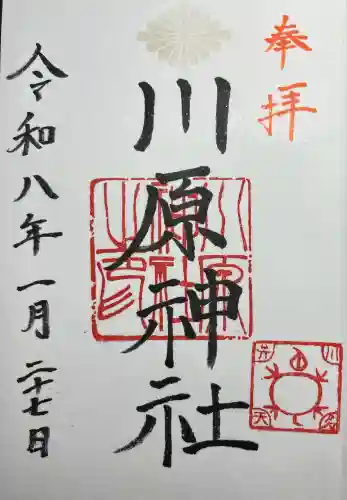 奉拝
川原神社
令和八年一月二十七日